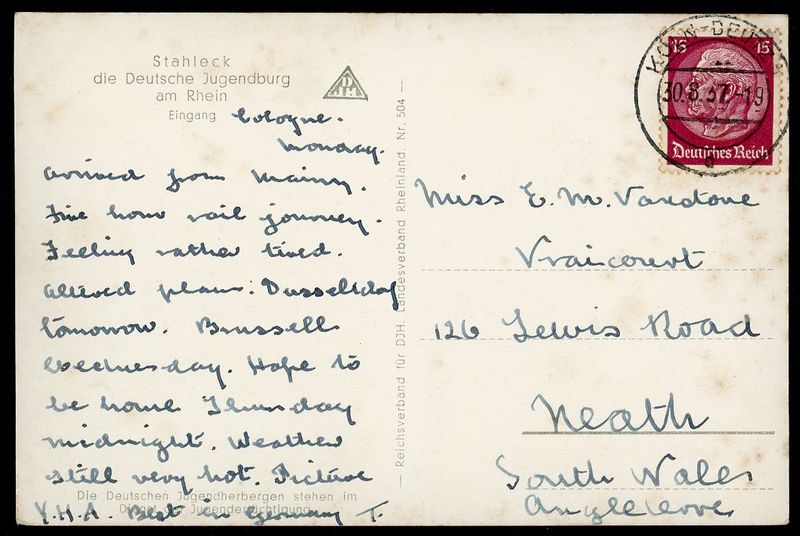 Stahleck
die Deutsche Jugendburg
am Rhein
Eingang
Cologne.
Monday.
Arrived from Mainz.
Five hour rail journey.
Feeling rather tired.
Altered plan: Dusseldorf
tomorrow. Brussells
Wednesday. Hope to
be home Thursday
midnight. Weather
still very hot. Picture
Y.H.A. Best in Germany T.
Die Deutschen Jugendherbergen stehen im
Dienst der Jugendertüchtigung
— Reichsverband für DJH. Landesverband Rheinland. Nr. 504 —
KÖLN-DEUTZ
30.8.37.-19
a
15 15
Deutsches Reich
Miss E. M. Vanstone
Vraicourt
126 Lewis Road
Neath
South Wales
Angleterre